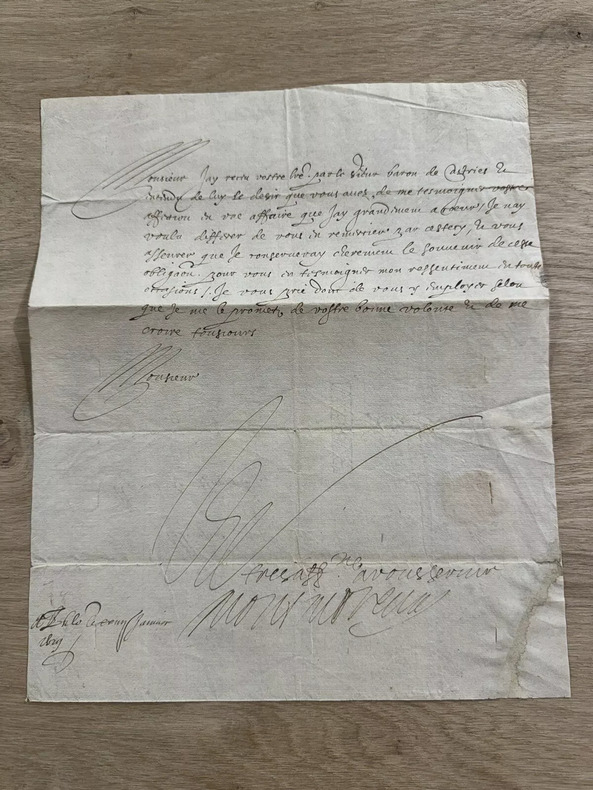 Monsieur Jay receu vostre lre par le sieur baron de Castries et
entendu de luy le desir que vous aves de me tesmoigner vostre
affection en une affaire que Jay grandement a coeur, Je nay
voulu differer de vous en remercier par ceste cy, et vous
asseurer que Je conserveray cherement le souvenir de ceste
obligaon pour vous en tesmoigner mon ressentiment en toutes
occasions. Je vous prie donc de vous y employer selon
que Je me le promets de vostre bonne volonte et de me
croire tousiours
Monsieur
tres aff.ne a vous servir
Montmorency
Janvier